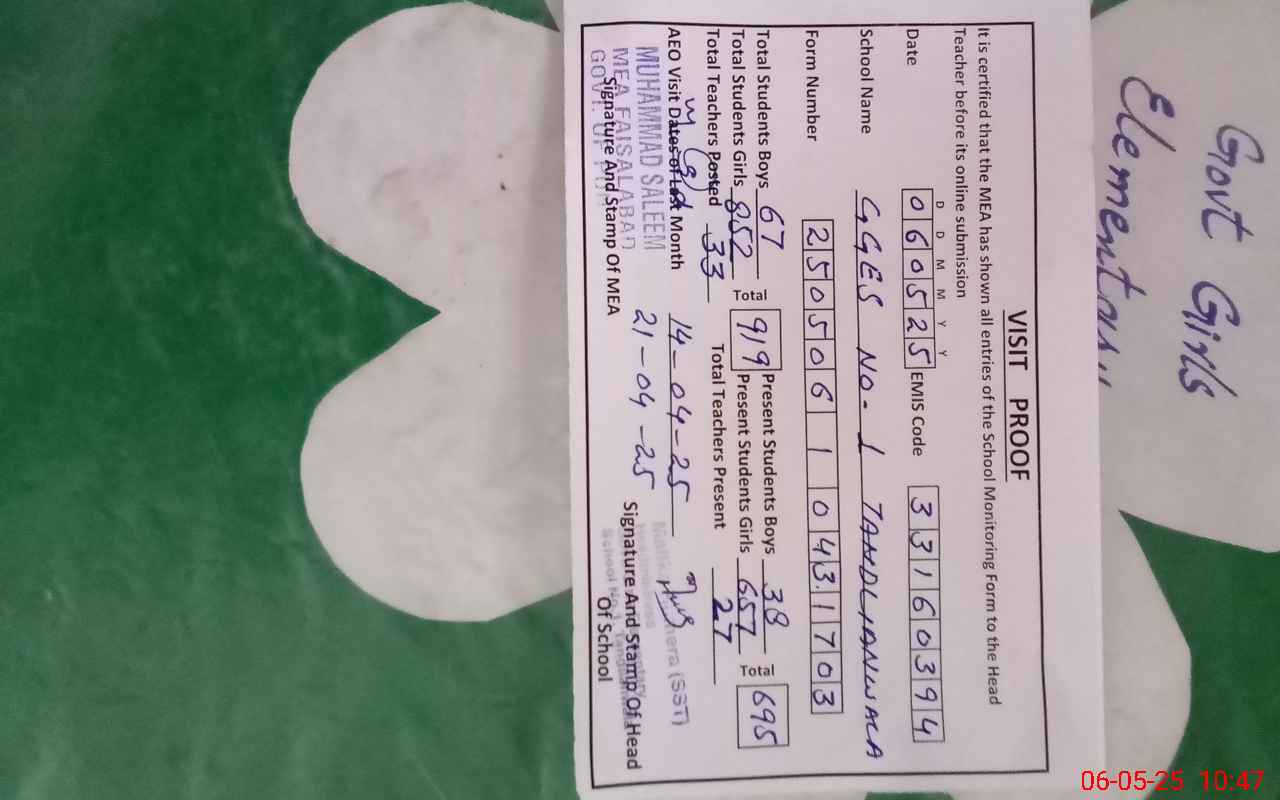 Govt Girls
Elementary
VISIT PROOF
It is certified that the MEA has shown all entries of the School Monitoring Form to the Head
Teacher before its online submission
D D M M Y Y
Date 060525 EMIS Code 33160394
School Name GGES NO-1 TANDLIANWALA
Form Number 2505061043.1703
Total Students Boys 67 Total 919 Present Students Boys 38 Total 695
Total Students Girls 852 Present Students Girls 657
Total Teachers Posted 33 Total Teachers Present 27
AEO Visit Dates of Last Month 14-04-25
21-04-25
MUHAMMAD SALEEM
MEA FAISALABAD
GOVT. OF
Signature And Stamp Of MEA
(SST)
School No.1,
Signature And Stamp Of Head
Of School
06-05-25 10:47